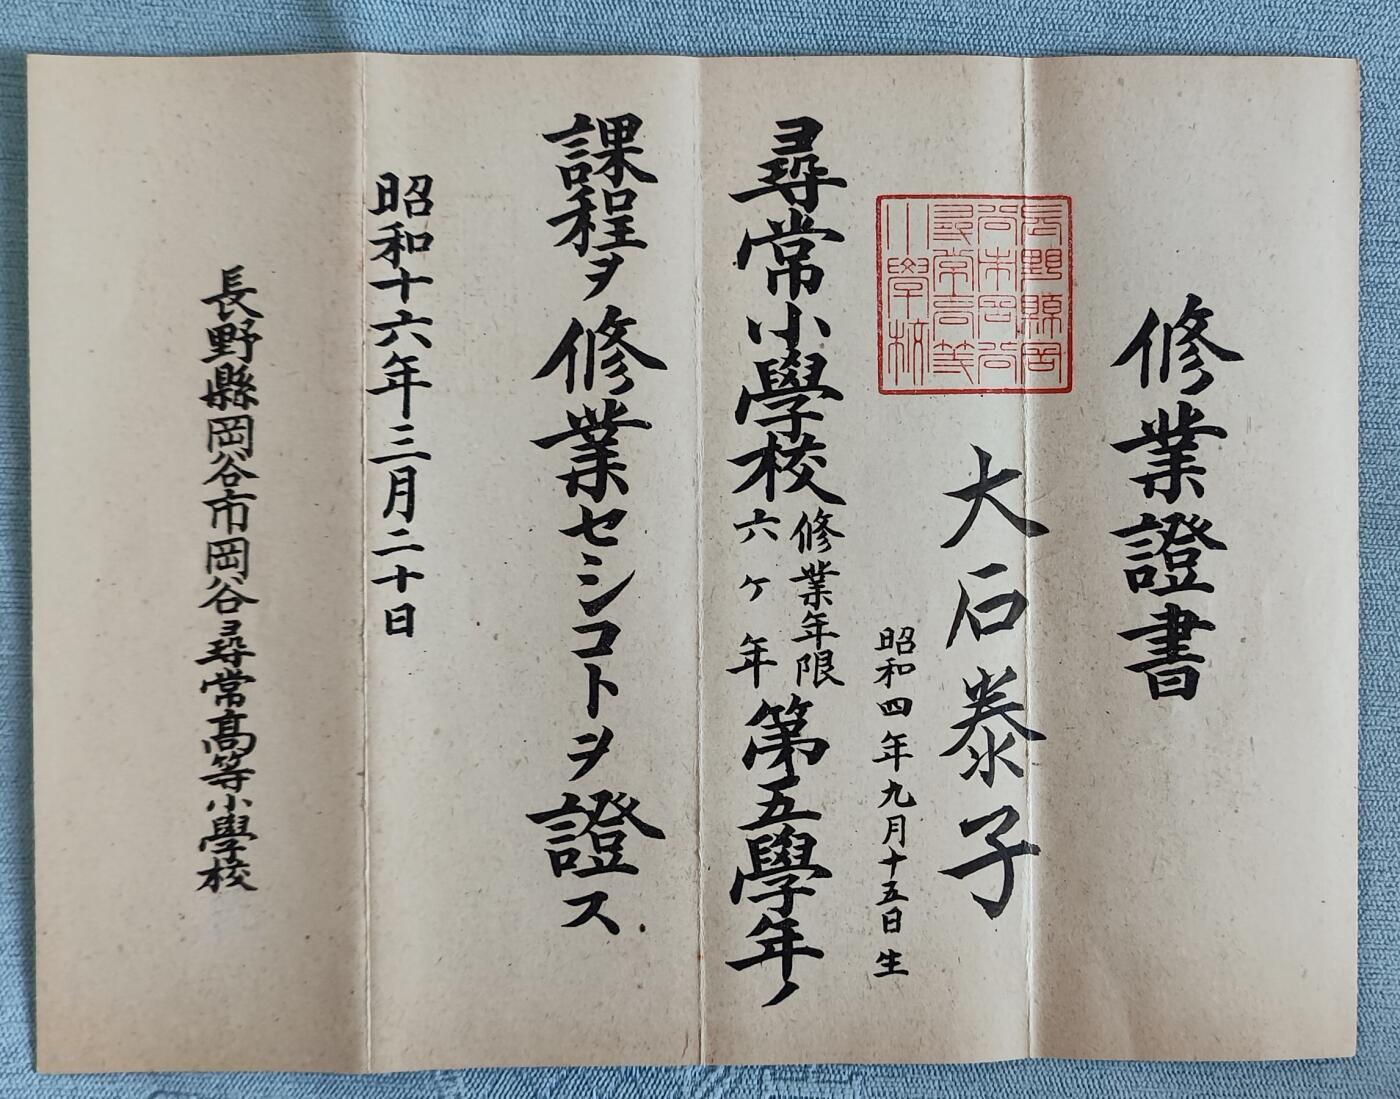 修業證書
長野縣岡
谷市岡谷
尋常高等
小學校
大石泰子
昭和四年九月十五日生
尋常小學校修業年限六ケ年第五學年ノ
課程ヲ修業セシコトヲ證ス
昭和十六年三月二十日
長野縣岡谷市岡谷尋常高等小學校